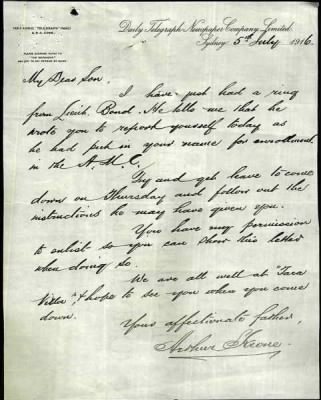 Daily Telegraph Newspaper Company Limited.
Sydney 5th July 1916.
My Dear Son.
I have just had a ring
from Lieut. Bond. He tells me that he
wrote you to report yourself today as
he had put in your name for enrollment
in the A. M. C.
Try and get leave to come
down on Thursday and follow out the
instructions he may have given you.
You have my permission
to enlist so you can show this letter
when doing so.
We are all well at "Tara
Villa", & hope to see you when you come
down.
Your affectionate father,
Arthur